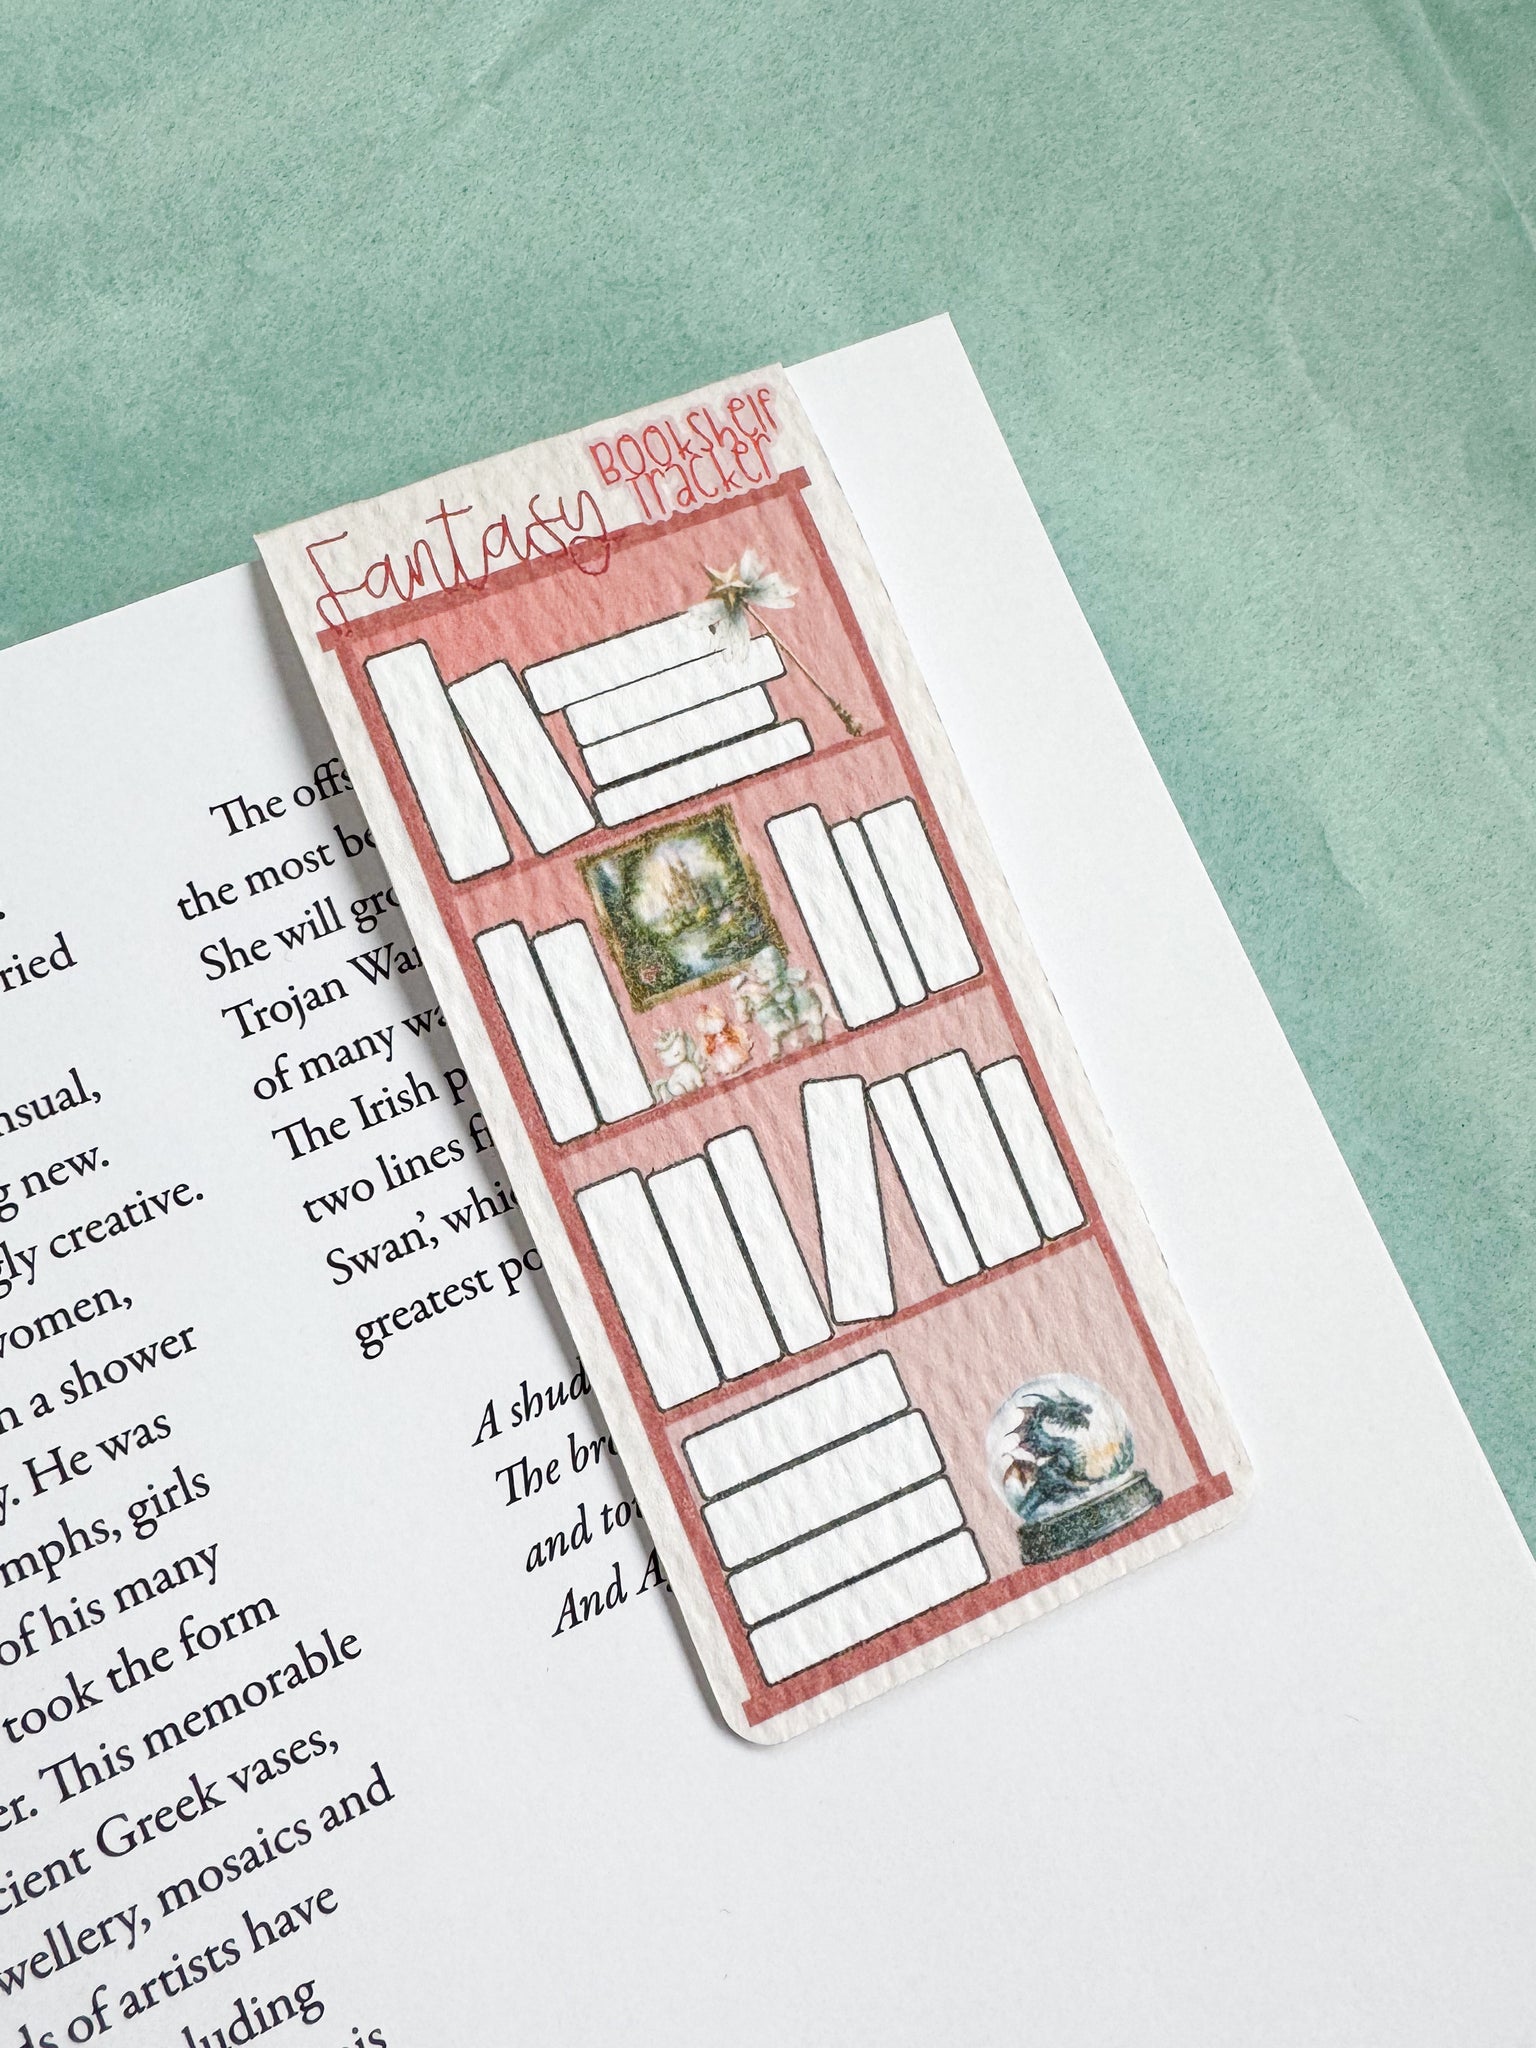 Fantasy
BOOKSHELF
TRACKER
ried
nsual,
g new.
gly creative.
women,
n a shower
y. He was
mphs, girls
of his many
took the form
er. This memorable
cient Greek vases,
wellery, mosaics and
ds of artists have
luding
is
The offs
the most be
She will gro
Trojan War
of many wa
The Irish p
two lines fr
Swan’, whic
greatest po
A shud
The bro
and to
And A